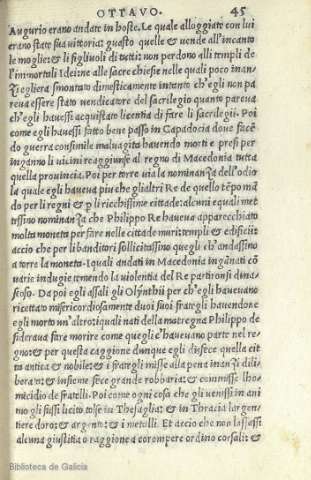 OTTAVO. 45
Augurio erano andate in hoste. Le quale alloggiate con lui
erano state sua vittoria: guasto quelle & vende all'incanto
le moglie: & li figliuoli di tutti: non perdono alli templi de
l'immortali Idei: ne alle sacre chiese nelle quali poco inan
zi egli era smontato dimesticamente intanto ch'egli non pa
reua essere stato vendicatore del sacrilegio quanto pareua
ch'egli hauesse acquistato licentia di fare li sacrilegii. Poi
come egli hauessi fatto bene passo in Capadocia doue facē
do guerra con simile maluagita hauendo morti e presi per
inganno li uicini raggiunse al regno di Macedonia tutta
quella prouincia. Poi per torre uia la nominanza dell'odio
la quale egli haueua piu che gli altri Re de quello tēpo mā
do per li regni & pli ricchissime cittade: alcuni equali met
tessino nominanza che Philippo Re haueua apparecchiato
molta moneta per fare nelle cittade muri: templi & edificii:
accio che per li banditori sollicitassino quegli ch'andassino
a torre la moneta. I quali andati in Macedonia ingānati cō
uarie indugie temendo la violentia del Re partironsi di na-
scoso. Da poi egli assali gli Olynthii per ch'egli haueuano
ricettato misericordiosamente duoi suoi frategli hauendone
egli morto un'altro: i quali nati della matregna Philippo de
sideraua fare morire come quegli c'haueuano parte nel re-
gno: & per questa caggione dunque egli disfece quella cit
ta antica & nobile: & i frategli misse alla pena inanzi dili-
berata: & insieme fece grande robbaria: & commisse l'ho-
micidio de fratelli. Poi come ogni cosa che gli uenissi in ani
mo gli fussi licito tolse in Thesaglia: & in Thracia l'argen-
tiere d'oro: & argento: & i metalli. Et accio che non lassassi
alcuna giustitia o raggione a corompere ordino corsali: &
Biblioteca de Galicia